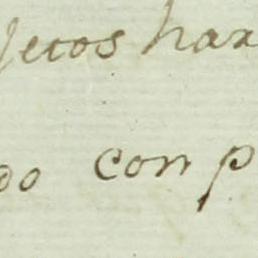 jetos hax
do con p